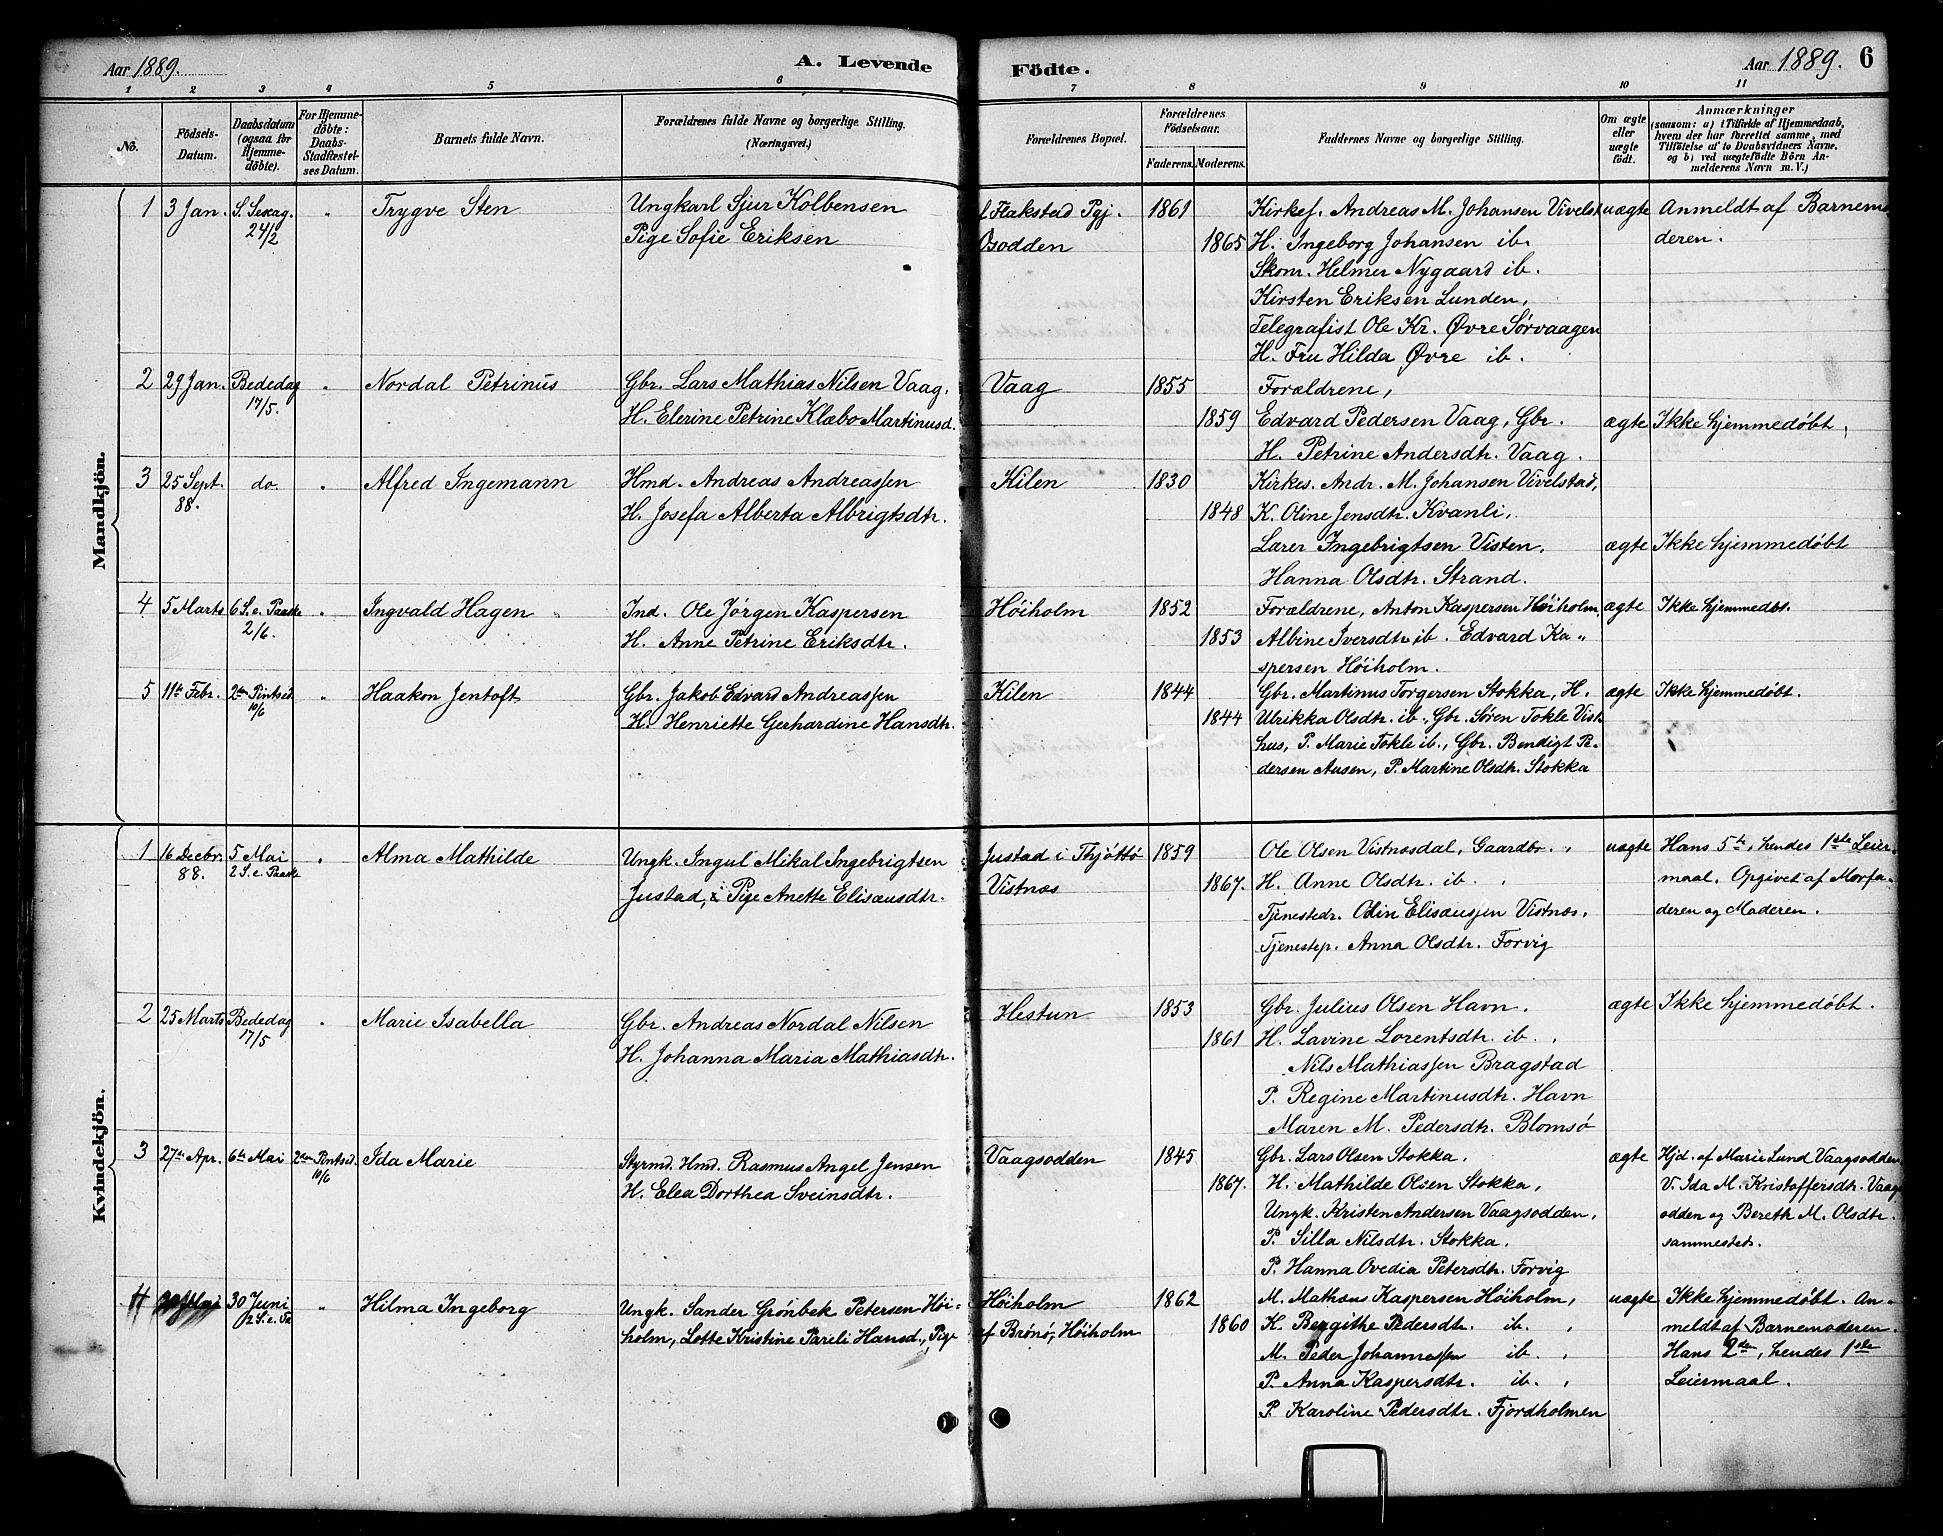 Aar 1889. A. Levende Fødte. Aar 1889. 6
1 2 3 4 5 6 7 8 9 10 11
No. Födsels-Datum. Daabsdatum (ogsaa for Hjemmedöbte). For Hjemmedöbte: Daabs-Stadfæstelses Datum. Barnets fulde Navn. Forældrenes fulde Navne og borgerlige Stilling. (Næringsvei.) Forældrenes Bopæl. Forældrenes Födselsaar. Faderens. Moderens. Faddernes Navne og borgerlige Stilling. Om ægte eller uægte födt. Anmærkninger (saasom: a) i Tilfælde af Hjemmedaab, hvem der har forrettet samme, med Tilföielse af to Daabsvidners Navne, og b) ved uægtefödte Börn Anmelderens Navn m. V.)
Mandkjön.
1 3 Jan. S. Sexag. " Trygve Sten Ungkarl Sjur Kolbensen f Flakstad Pgj. 1861 Kirkef. Andreas M. Johansen Vivelst uægte Anmeldt af Barnemo
24/2 Pige Sofie Eriksen Osodden 1865 H. Ingeborg Johansen ib. deren.
Skom. Helmer Nygaard ib.
Kirsten Eriksen Lunden,
Telegrafist Ole Kr. Øvre Sørvaagen
H. Fru Hilda Øvre ib.
2 29 Jan. Bededag " Nordal Petrinus Gbr. Lars Mathias Nilsen Vaag, Vaag 1855 Forældrene,
17/5. H. Elerine Petrine Klæbo Martinusd. 1859 Edvard Pedersen Vaag, Gbr. ægte Ikke hjemmedøbt,
H. Petrine Andersdtr. Vaag.
3 25 Sept. do " Alfred Ingemann Hmd. Andreas Andreassen Kilen 1830 Kirkes. Andr. M. Johansen Vivelstad,
88. H. Josefa Alberta Albrigtsdtr. 1848 K. Oline Jensdtr. Kvanli,
Lærer Ingebrigtsen Visten, ægte Ikke hjemmedøbt
Hanna Olsdtr. Strand.
4 5 Marts 6 S. e. Paaske " Ingvald Hagen Ind. Ole Jørgen Kaspersen Høiholm 1852 Forældrene, Anton Kaspersen Høiholm, ægte Ikke hjemmedbt.
2/6. H. Anne Petrine Eriksdtr. 1853 Albine Iversdtr ib. Edvard Ka"
spersen Høiholm.
5 11te Febr. 2den Pintsed " Haakon Jentoft Gbr. Jakob Edvard Andreassen Kilen 1844 Gbr. Martinus Torgersen Stokka, H. ægte Ikke hjemmedøbt.
10/6 H. Henriette Gerhardine Hansdtr. 1844 Ulrikka Olsdtr. ib. Gbr. Søren Tokle Vist-
hus, P. Marie Tokle ib., Gbr. Bendigt Pe-
dersen Ausen, P. Martine Olsdtr. Stokka
Kvindekjön.
1 16 Decbr. 5 Mai " Alma Mathilde Ungk. Ingul Mikal Ingebrigtsen Justad i Thjøttø 1859 Ole Olsen Vistnæsdal, Gaardbr. , uægte Hans 5te, hendes 1ste Leier-
88. 2 S. e. Paaske Justad, & Pige Anette Elisæusdtr. Vistnæs 1867. H. Anne Olsdtr. ib. , maal. Opgivet af Morfa-
Tjenestedr. Odin Elisæussen Vistnæs, deren og Moderen.
Tjenestep. Anna Olsdtr. Forvig
2 25 Marts Bededag " Marie Isabella Gbr. Andreas Nordal Nilsen Hestun 1853 Gbr. Julius Olsen Havn. ægte Ikke hjemmedøbt.
17/5 H. Johanna Maria Mathiasdtr. 1861 H. Lavine Lorentsdtr. ib. ,
Nils Mathiassen Bragstad
P. Regine Martinusdtr. Havn
Maren M. Pedersdtr. Blomsø
3 27de Apr. 6te Mai 2den Pintsed. Ida Marie Styrmd. Hmd. Rasmus Angel Jensen Vaagsodden 1845 Gbr. Lars Olsen Stokka. ægte Hjd. af Marie Lund Vaagsodden
10/6 H. Elea Dorthea Sveinsdtr. 1867. H. Mathilde Olsen Stokka, V. Ida M. Kristoffersdtr. Vaags
Ungk. Kristen Andersen Vaagsodden, odden og Bereth M. Olsdtr.
P. Silla Nilsdtr. Stokka. sammesteds.
P. Hanna Ovedia Petersdtr. Forvig
4 30 Juni " Hilma Ingeborg Ungk. Sander Grønbek Petersen Høi- Høiholm 1862 M. Mathæus Kaspersen Høiholm, uægte Ikke hjemmedøbt. An-
2 S. e. holm, Lotte Kristine Pareli Hansd., Pige af Brønø, Høiholm 1860 K. Bergithe Pedersdtr. ib. , meldt af Barnemoderen.
M. Peder Johannessen ib. , Hans 2den, hendes 1ste
P. Anna Kaspersdtr. ib. , Leiermaal.
P. Karoline Pedersdtr. Fjordholmen